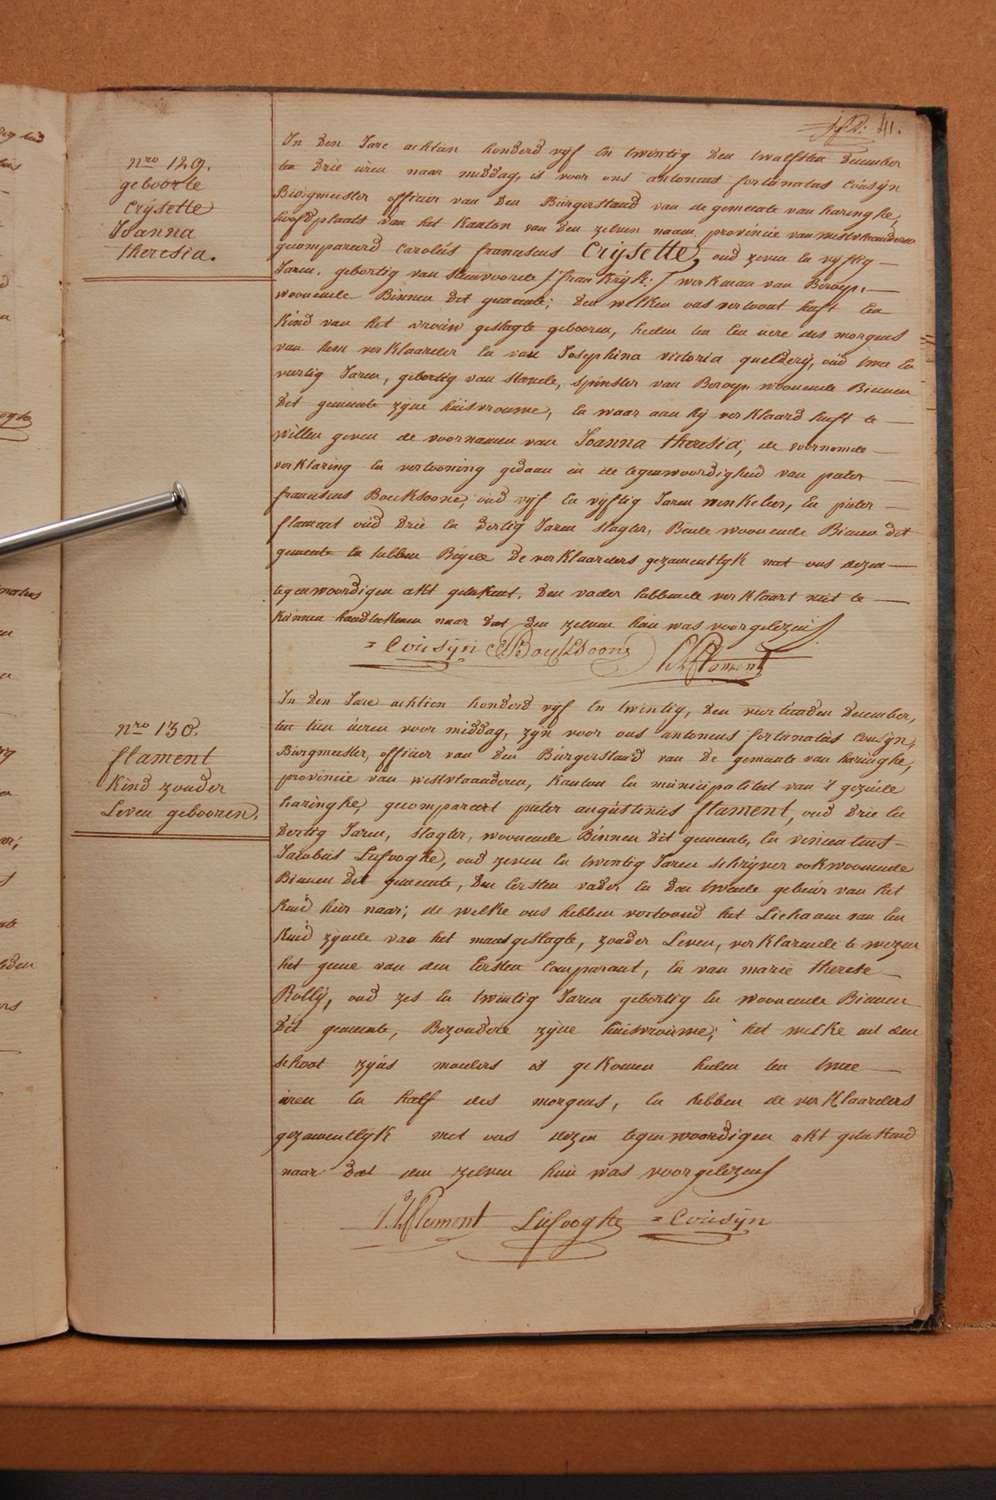 41.
nro 129.
geboorte
Crijsette
Joanna
theresia.
In den Jare achtien honderd vijf en twintig den twalfsten December
ten drie uren naar middag, is voor ons antoneus fortunatus Cousijn
Burgmeester officier van den Burgerstand van de gemeente van haringhe,
hoofdplaats van het Kanton van den zelven naam, provincie van westvlaanderen
gecompareerd Carolus franciscus Crijsette, oud zeven en vijftig
Jaren, gebortig van Steenvoorde /:frankrijk:/ werkman van Beroep,
woonende Binnen dit gemeente; den welken ons vertoont heeft een
kind van het vrouw geslagte gebooren, heden ten een ure des morgens
van hem verklaarder en van Josephina victoria queldery, oud twee en
veertig Jaren, gebortig van Stavele, Spinster van Beroep woonende Binnen
dit gemeente zijne huisvrouwe, en waar aan hij verklaard heeft te
willen geven de voornamen van Joanna theresia, de voornoemde
verklaring en vertooning gedaan in de tegenwoordigheid van pieter
franciscus Bouckoone, oud vijf en vijftig Jaren winkelier, en pieter
flament oud drie en dertig Jaren slagter, Beede woonende Binnen dit
gemeente en hebben Beijde de verklaarders gezamentlijk met ons dezen
tegenwoordigen akt geteekent, den vader hebbende verklaart niet te
kunnen handteekenen naar dat den zelven hun was voorgelezen
= Cousijn
P: A: Flament
nro 130.
flament
Kind zonder
Leven gebooren.
In den Jare achtien honderd vijf en twintig, den veertienden December,
ten tien uren voor middag, zijn voor ons antoneus fortunatus Cousijn,
Burgmeester, officier van den Burgerstand van de gemeente van haringhe,
provincie van westvlaanderen, Kanton en municipaliteit van 't gezeide
haringhe, gecomparert pieter augustinus flament, oud drie en
dertig Jaren, slagter, woonende Binnen dit gemeente, en vincentius
Jacobus Lufooghe, oud zeven en twintig Jaren schrijver ook woonende
Binnen dit gemeente, den Eersten vader en den tweede gebuir van het
kind hier naar; de welke ons hebben vertoond het Lichaam van een
kind zijnde van het mansgeslagte, zonder Leven, verklarende te wezen
het geene van den Eersten Comparant, en van marie therese
Rolly, oud zes en twintig Jaren gebortig en woonende Binnen
dit gemeente, Bezondere zijne huisvrouwe; het welke uit den
schoot zijns moeders is gekomen heden ten twee
uren en half des morgens, en hebben de verklaarders
gezamentlijk met ons dezen tegenwoordigen akt geteekend
naar dat den zelven hun was voorgelezen
P: A: Flament Lufooghe = Cousijn